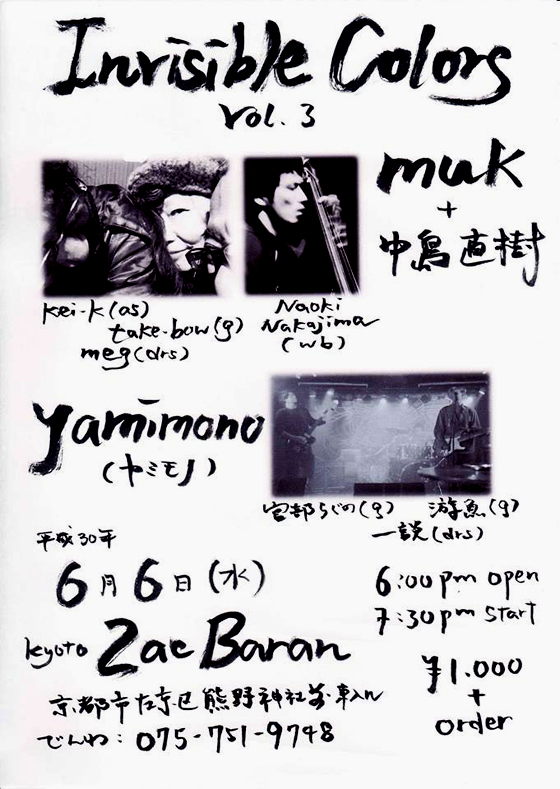 Invisible Colors
vol. 3
muk
+
中島直樹
kei-k(as)
take-bow(g)
meg(drs)
Naoki
Nakajima
(wb)
yamimono
(ヤミモノ)
宮部らじの(g) 游魚(g)
一説(drs)
平成30年
6月6日(水)
6:00pm open
7:30pm start
kyoto Zac Baran
¥1.000
+
order
京都市左京区熊野神社前東入ル
でんわ: 075-751-9748